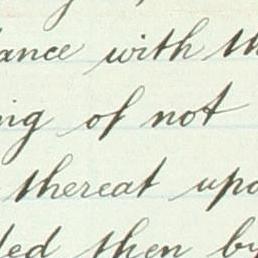 ance with th
ing of not
thereat upo
ded then by